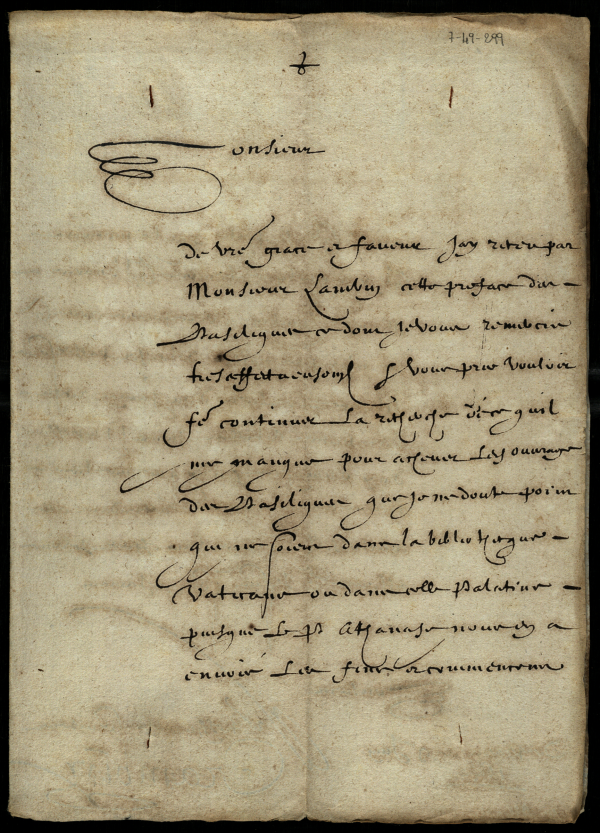 7-49-299
Monsieur
de vre grace et faveur Jay receu par
Monsieur Lambin cette preface des
Basiliques ce dont Je vous remercie
tres affectueusomt & vous prie vouloir
fe continuer la recherche de ce quil
me manque pour achever les ouvrage
des Basiliques que je ne doute point
qui ne soient dans la bibliotheque
Vaticane ou dans celle Palatine
puisque le P Athanase nous en a
envoié les fins et commencemt